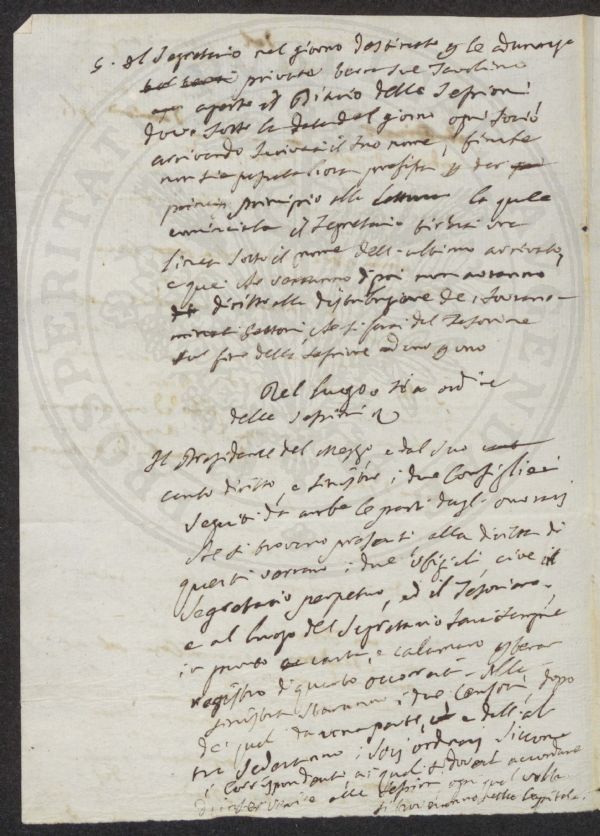 5. Il Segretario nel giorno destinato p le adunanze
private terrà sul Tavolino
aperto il Diario delle Sessioni
dove sotto la data del giorno ogni Socio
arrivando scriverà il suo nome, finche
non sia passata l'ora prefissa p dar
principio alla lettura la quale
cominciata il Segretario tirerà una
linea sotto il nome dell'ultimo arrivato,
e quei che verranno dipoi non avranno
diritto alla distribuzione de i sovrano-
minati Gettoni, che si farà dal Tesoriere
sul fine della Sessione ad uno p uno
Del luogo, sia ordine
delle Sessioni
Il Presidente nel mezzo, e dal suo
canto diritto, e sinistro i due Consiglieri
seguiti da ambe le parti dagli onorarj
che si trovano presenti alla diritta di
questi saranno i due Uffiziali, cioè il
Segretario perpetuo, ed il Tesoriere,
e al luogo del Segretario sarà sempre
in pronto carta, e calamaro p tener
registro di quanto occorrerà. Alla
sinistra staranno i due Censori, dopo
de' quali da una parte, e dall'al
tra sederanno i Socj ordinarj siccome
i corrispondenti ai quali si dovrà accordare
d'intervenire alle Sessioni ogni qual volta
si troveranno nella Capitale.
PROSPERITATI AUGENDAE